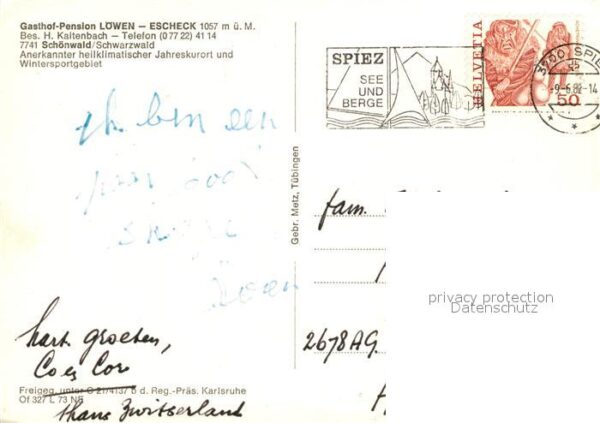 Gasthof-Pension LÖWEN – ESCHECK 1057 m ü. M.
Bes. H. Kaltenbach – Telefon (0 77 22) 41 14
7741 Schönwald/Schwarzwald
Anerkannter heilklimatischer Jahreskurort und
Wintersportgebiet
SPIEZ
SEE
UND
BERGE
HELVETIA
50
3700 SPIEZ
-9-6.82-14
ik ben een
paar 
hart. groeten,
Co es Cor
thans Zwitserland
Freigeg. unter d. Reg.-Präs. Karlsruhe
Of 327 L 73 NE
Gebr. Metz, Tübingen
fam.
2678 AG.
privacy protection
Datenschutz